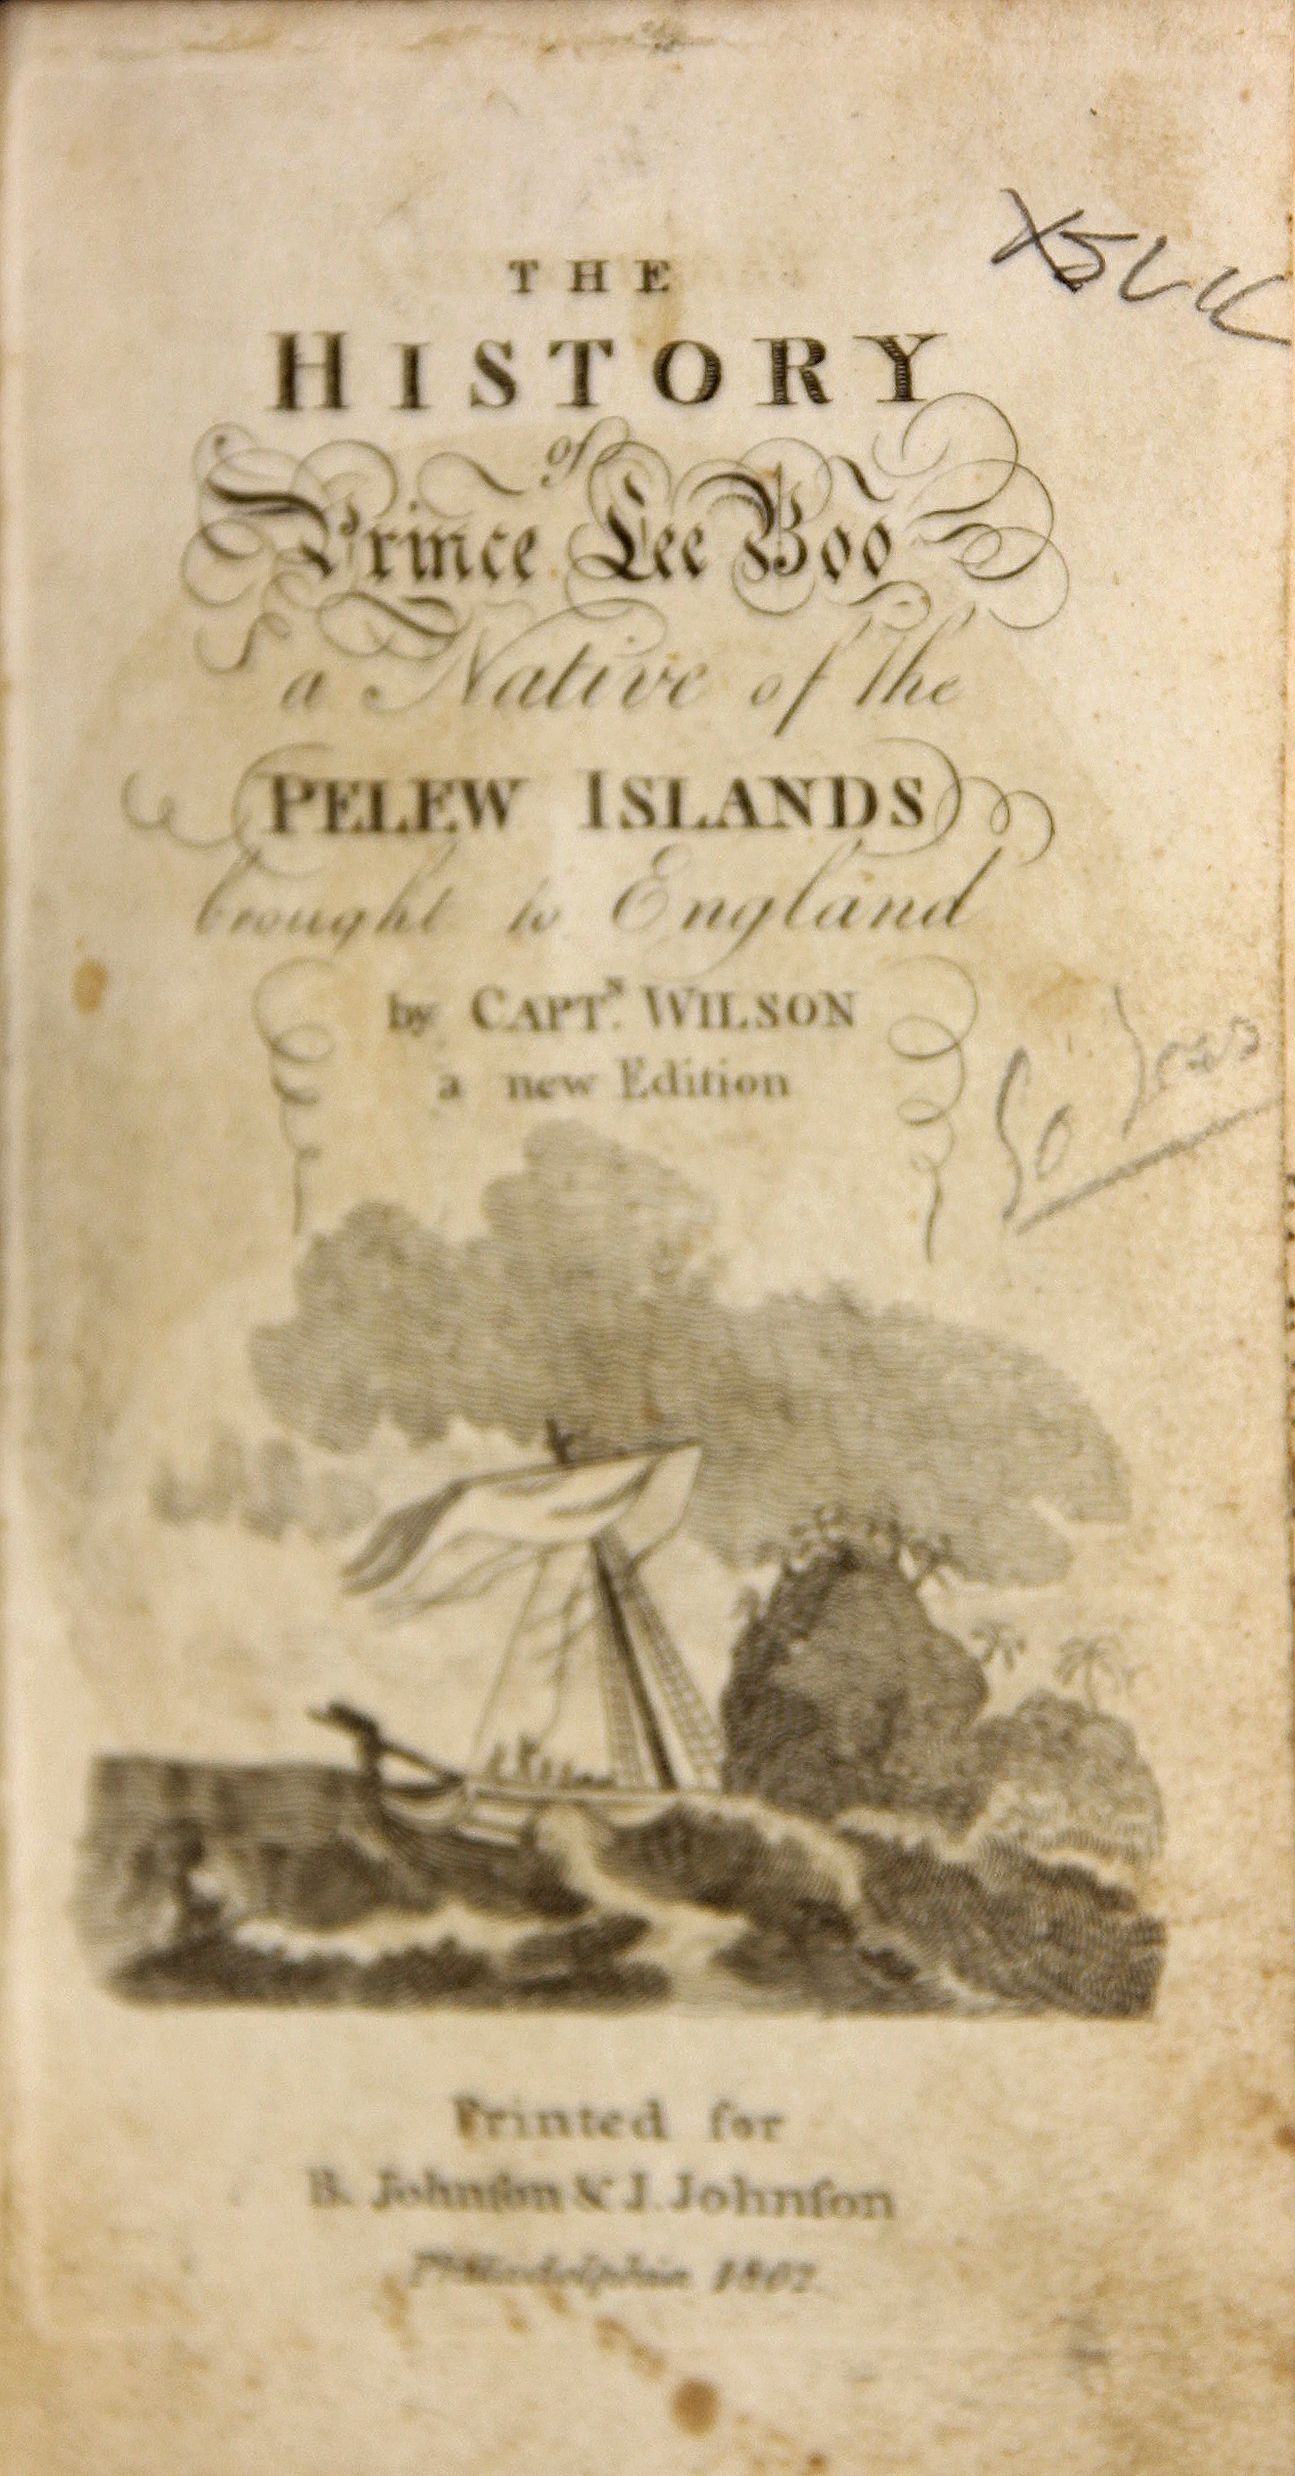 THE
HISTORY
of
Prince Lee Boo
a Native of the
PELEW ISLANDS
brought to England
by CAPTN. WILSON
a new Edition
Printed for
B. Johnſon & J. Johnſon
Philadelphia 1802.